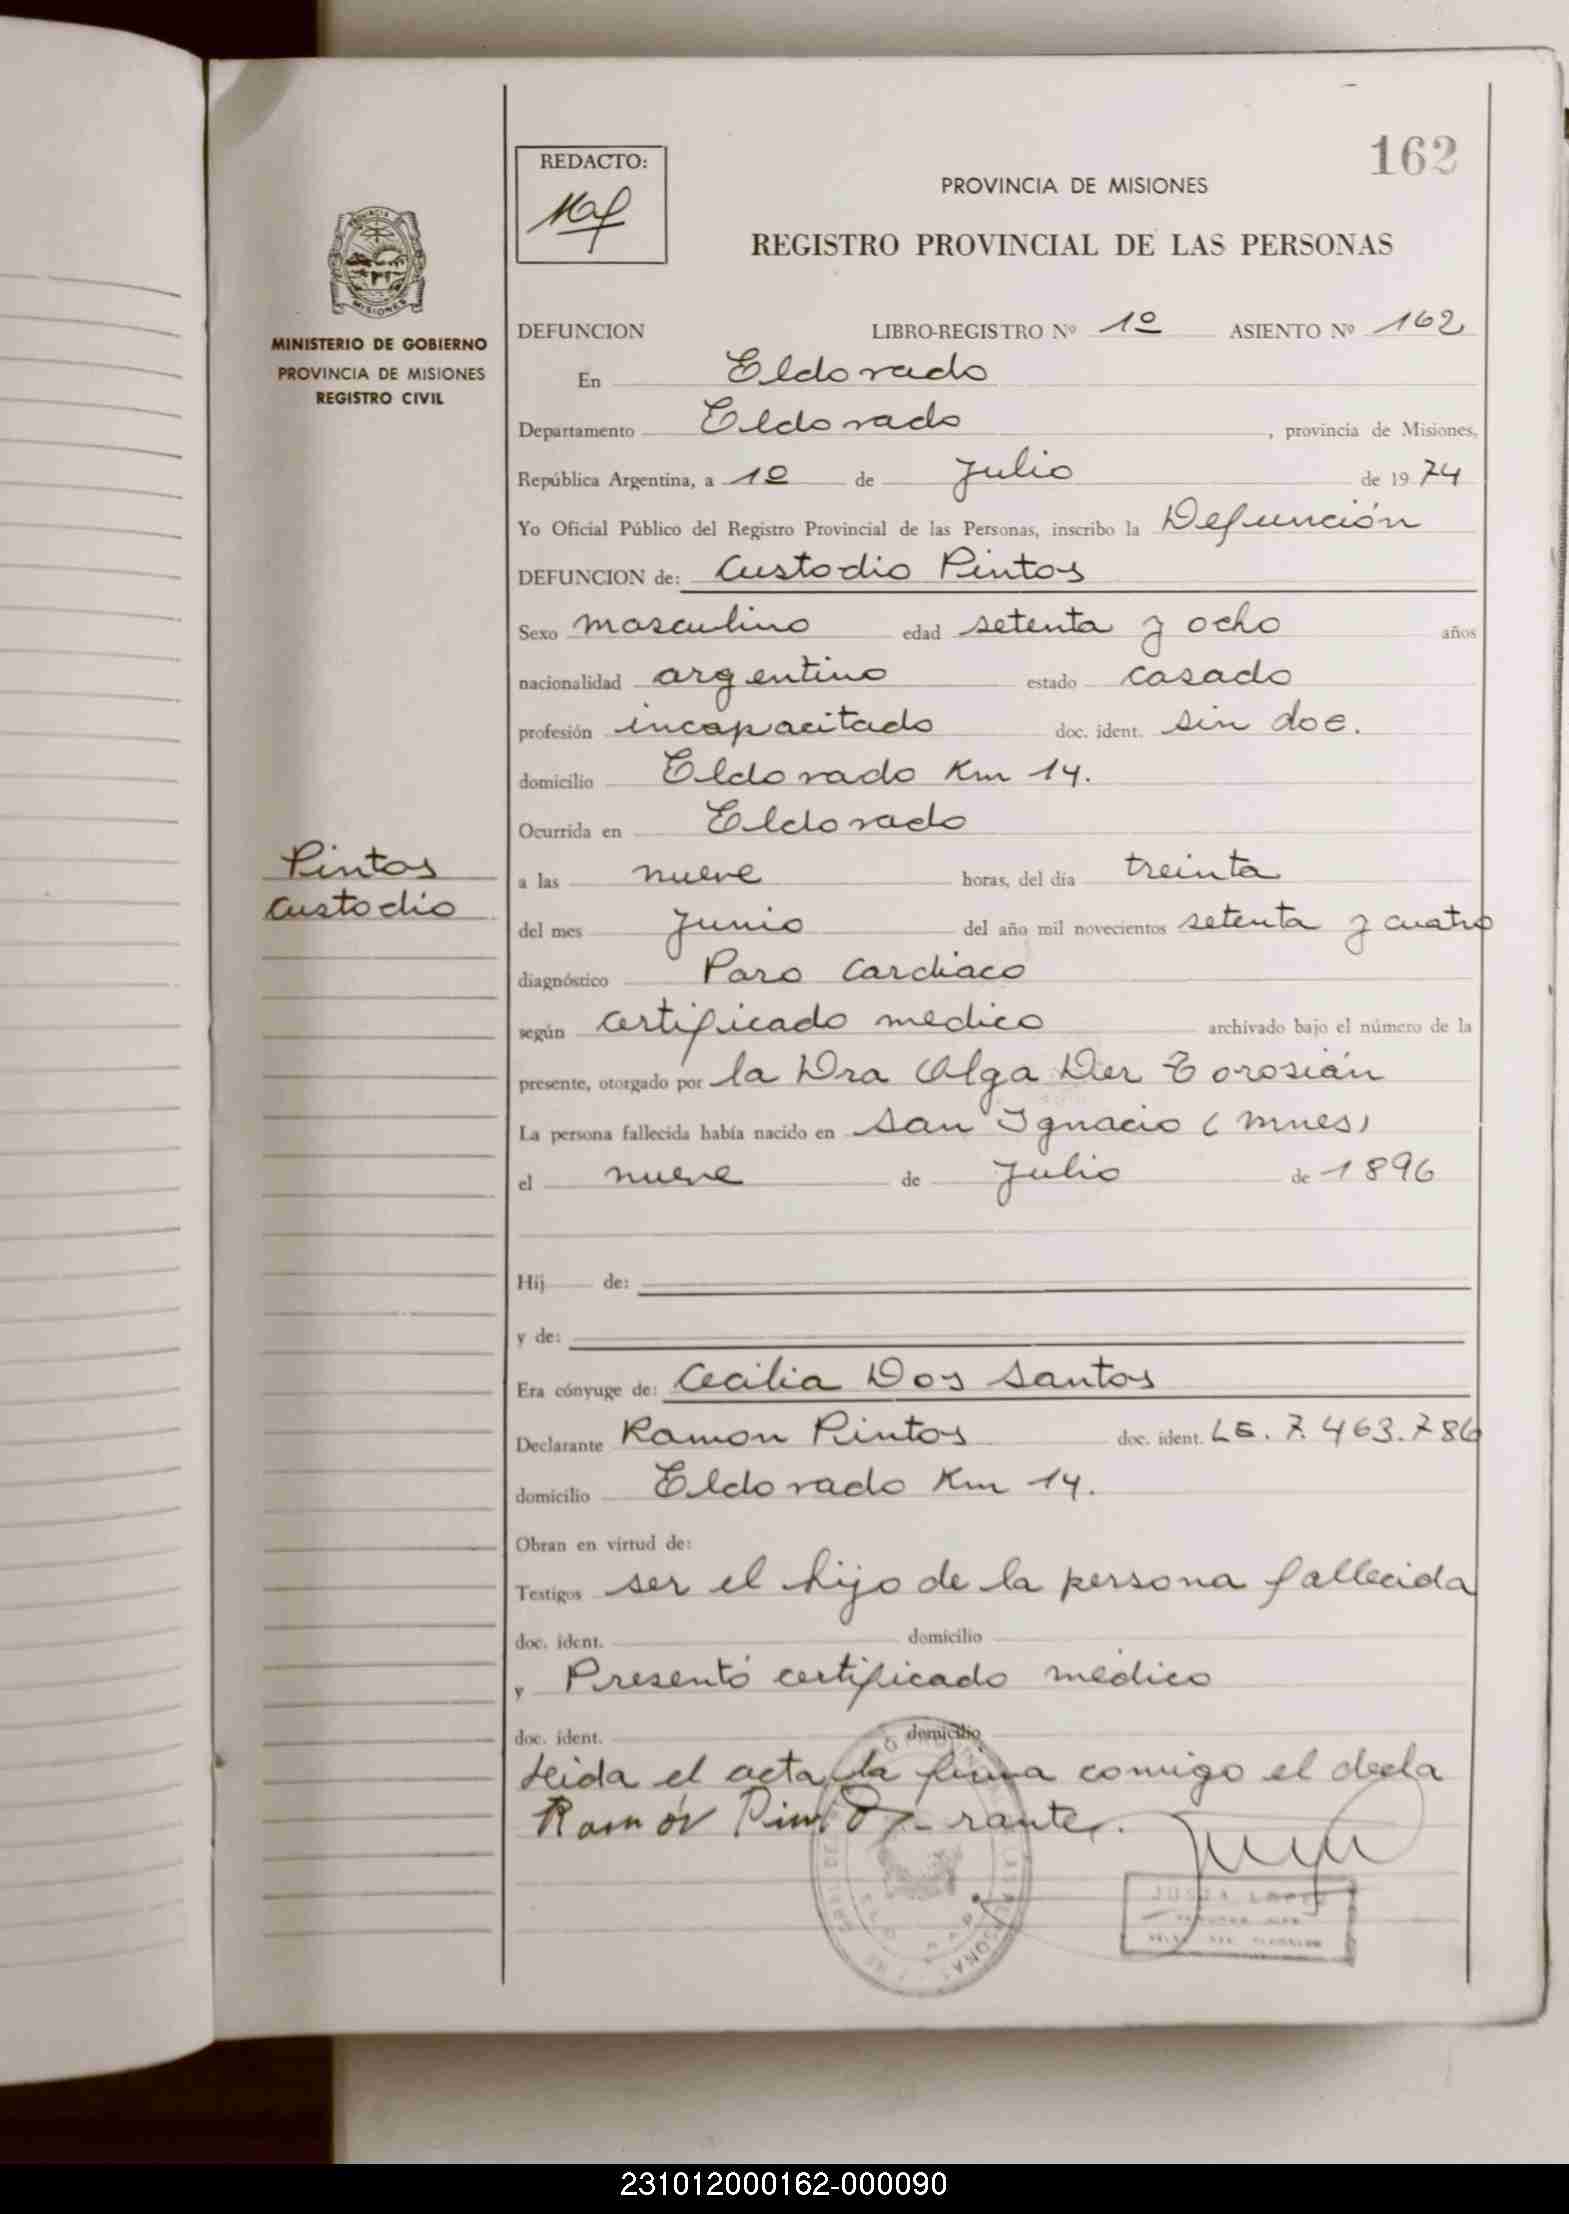 162
REDACTO:
PROVINCIA DE MISIONES
REGISTRO PROVINCIAL DE LAS PERSONAS
PROVINCIA
MISIONES
MINISTERIO DE GOBIERNO
PROVINCIA DE MISIONES
REGISTRO CIVIL
DEFUNCION LIBRO-REGISTRO Nº 1º ASIENTO Nº 162
En Eldorado
Departamento Eldorado , provincia de Misiones,
República Argentina, a 1º de Julio de 1974
Yo Oficial Público del Registro Provincial de las Personas, inscribo la Defunción
DEFUNCION de: Custodio Pintos
Sexo masculino edad setenta y ocho años
nacionalidad argentino estado casado
profesión incapacitado doc. ident. sin doc.
domicilio Eldorado Km 14.
Ocurrida en Eldorado
Pintos
Custodio
a las nueve horas, del día treinta
del mes Junio del año mil novecientos setenta y cuatro
diagnóstico Paro Cardiaco
según certificado medico archivado bajo el número de la
presente, otorgado por la Dra Olga Der Torosián
La persona fallecida había nacido en San Ignacio (mnes)
el nueve de Julio de 1896
Hij de:
y de:
Era cónyuge de: Cecilia Dos Santos
Declarante Ramon Pintos doc. ident. LE. 7.463.786
domicilio Eldorado Km 14.
Obran en virtud de:
Testigos ser el hijo de la persona fallecida
doc. ident. domicilio
y Presentó certificado médico
doc. ident. domicilio
Leida el acta, la firma comigo el decla
Ramón Pintos rante.
231012000162-000090